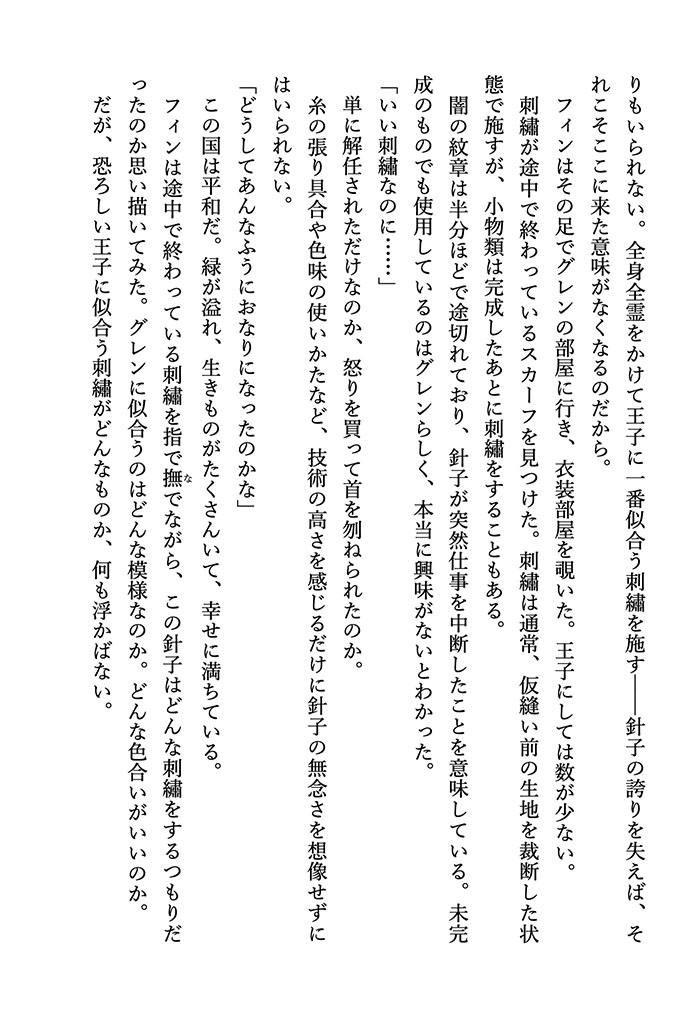 りもいられない。全身全霊をかけて王子に一番似合う刺繡を施す――針子の誇りを失えば、そ
れこそここに来た意味がなくなるのだから。
フィンはその足でグレンの部屋に行き、衣装部屋を覗いた。王子にしては数が少ない。
刺繡が途中で終わっているスカーフを見つけた。刺繡は通常、仮縫い前の生地を裁断した状
態で施すが、小物類は完成したあとに刺繡をすることもある。
闇の紋章は半分ほどで途切れており、針子が突然仕事を中断したことを意味している。未完
成のものでも使用しているのはグレンらしく、本当に興味がないとわかった。
「いい刺繡なのに……」
単に解任されただけなのか、怒りを買って首を刎ねられたのか。
糸の張り具合や色味の使いかたなど、技術の高さを感じるだけに針子の無念さを想像せずに
はいられない。
「どうしてあんなふうにおなりになったのかな」
この国は平和だ。緑が溢れ、生きものがたくさんいて、幸せに満ちている。
フィンは途中で終わっている刺繡を指で撫なでながら、この針子はどんな刺繡をするつもりだ
ったのか思い描いてみた。グレンに似合うのはどんな模様なのか。どんな色合いがいいのか。
だが、恐ろしい王子に似合う刺繡がどんなものか、何も浮かばない。